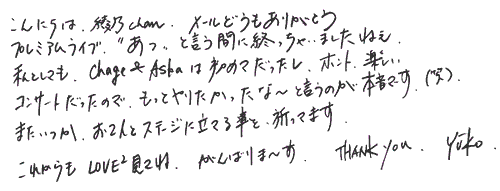 こんにちは、綾乃chan. メールどうもありがとう
プレミアムライブ、"あっ"と言う間に終っちゃいましたねぇ.
私としても、Chage & Askaは初めてだったし、ホント、楽しい
コンサートだったので、もっとやりたかったな〜と言うのが本音です(笑).
またいつか、お2人とステージに立てる事を、祈ってます.
これからも LOVE² 見てね. がんばりま〜す. THANK YOU. Yuko.